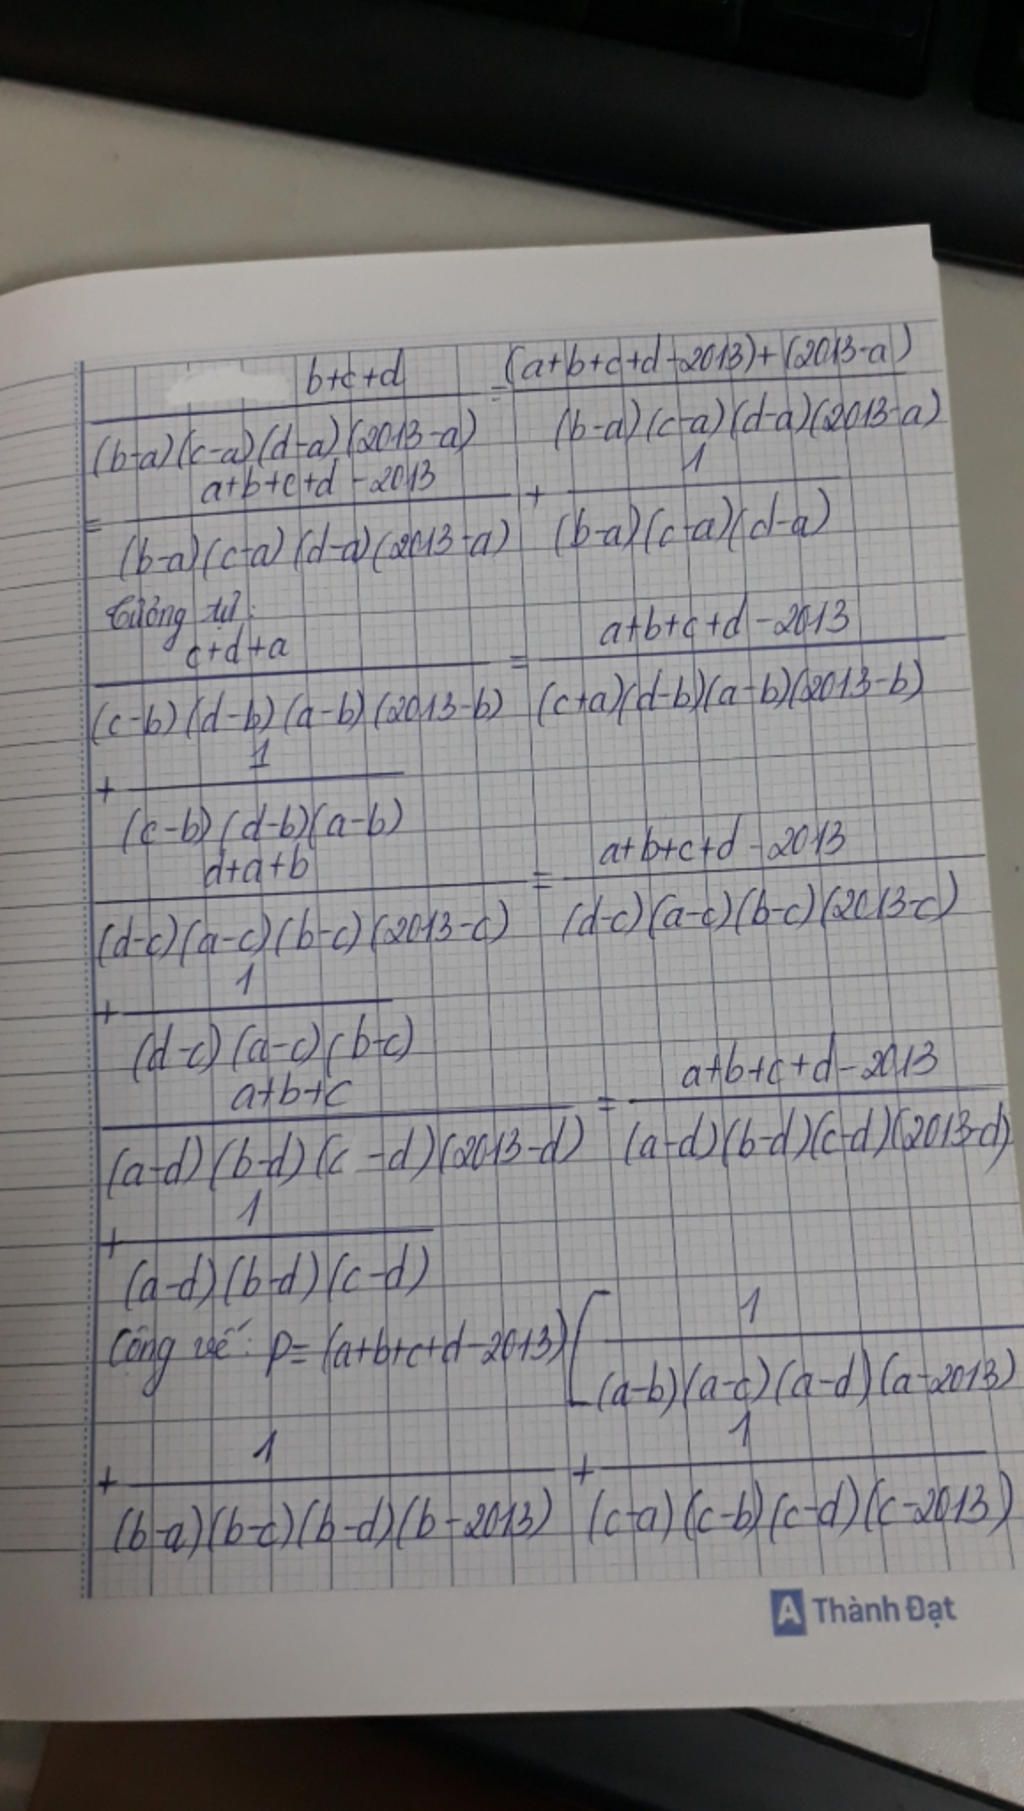 b+c+d = (a+b+c+d-2013)+(2013-a)
(b-a)(c-a)(d-a)(2013-a) (b-a)(c-a)(d-a)(2013-a)
a+b+c+d-2013 1
= +
(b-a)(c-a)(d-a)(2013-a) (b-a)(c-a)(d-a)
Tương tự:
c+d+a = a+b+c+d-2013
(c-b)(d-b)(a-b)(2013-b) (c+a)(d-b)(a-b)(2013-b)
1
+
(c-b)(d-b)(a-b)
d+a+b = a+b+c+d-2013
(d-c)(a-c)(b-c)(2013-c) (d-c)(a-c)(b-c)(2013-c)
1
+
(d-c)(a-c)(b-c)
a+b+c = a+b+c+d-2013
(a-d)(b-d)(c-d)(2013-d) (a-d)(b-d)(c-d)(2013-d)
1
+
(a-d)(b-d)(c-d)
Cộng vế: P=(a+b+c+d-2013)[ 1
(a-b)(a-c)(a-d)(a-2013)
1 1
+ +
(b-a)(b-c)(b-d)(b-2013) (c-a)(c-b)(c-d)(c-2013)
A Thành Đạt